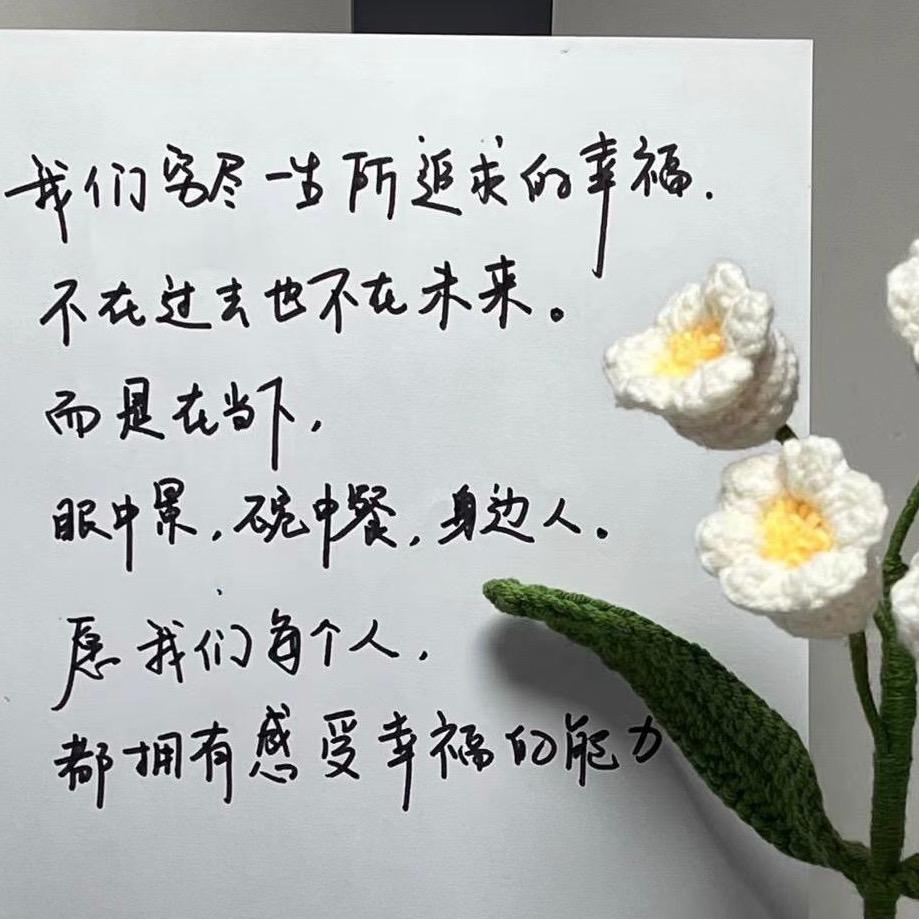 我们穷尽一生所追求的幸福.
不在过去也不在未来。
而是在当下,
眼中景,碗中餐,身边人。
愿我们每个人,
都拥有感受幸福的能力